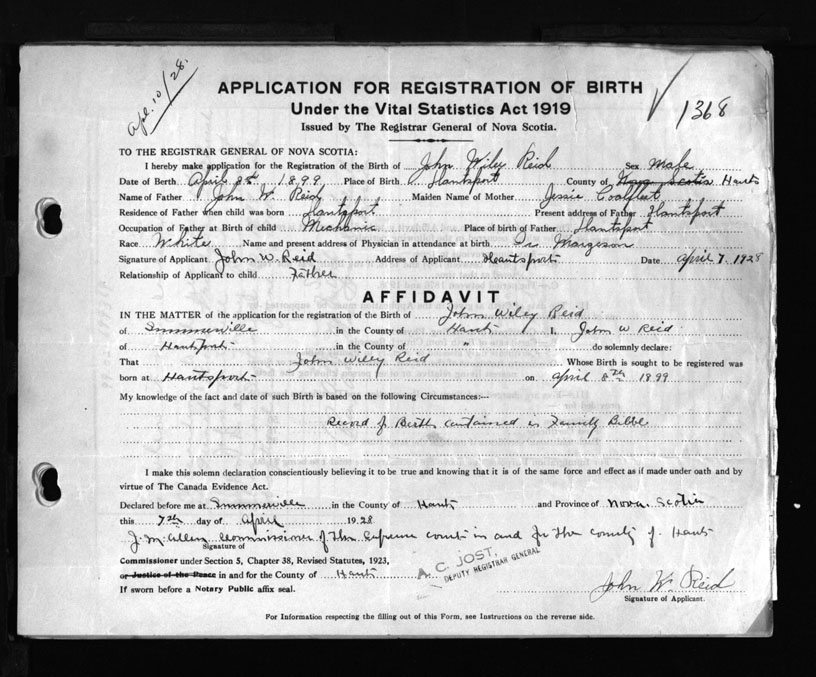 Apl. 10/28.
APPLICATION FOR REGISTRATION OF BIRTH
1368
Under the Vital Statistics Act 1919
Issued by The Registrar General of Nova Scotia.
TO THE REGISTRAR GENERAL OF NOVA SCOTIA:
I hereby make application for the Registration of the Birth of John Wiley Reid Sex Male
Date of Birth April 8th 1899 Place of Birth Hantsport County of Nova Scotia Hants
Name of Father John W. Reid Maiden Name of Mother Jessie Coalfleet
Residence of Father when child was born Hantsport Present address of Father Hantsport
Occupation of Father at Birth of child Mechanic Place of birth of Father Hantsport
Race White Name and present address of Physician in attendance at birth Dr Margeson
Signature of Applicant John W. Reid Address of Applicant Hantsport Date April 7, 1928
Relationship of Applicant to child Father
AFFIDAVIT
IN THE MATTER of the application for the registration of the Birth of John Wiley Reid
of Summerville in the County of Hants I, John W Reid
of Hantsport in the County of " do solemnly declare:
That John Wiley Reid Whose Birth is sought to be registered was
born at Hantsport on April 8th 1899
My knowledge of the fact and date of such Birth is based on the following Circumstances:—
Record of Birth contained in Family Bible
I make this solemn declaration conscientiously believing it to be true and knowing that it is of the same force and effect as if made under oath and by
virtue of The Canada Evidence Act.
Declared before me at Summerville in the County of Hants and Province of Nova Scotia
this 7th day of April 1928
J. M. Allen Commissioner of the Supreme Court in and for the County of Hants
Signature of
Commissioner under Section 5, Chapter 38, Revised Statutes, 1923,
A. C. JOST,
DEPUTY REGISTRAR GENERAL
or Justice of the Peace in and for the County of Hants
John W. Reid
If sworn before a Notary Public affix seal.
Signature of Applicant.
For Information respecting the filling out of this Form, see Instructions on the reverse side.